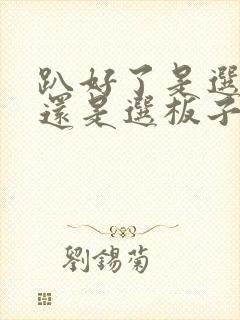 趴好了是選
還是選板子
劉錫菊